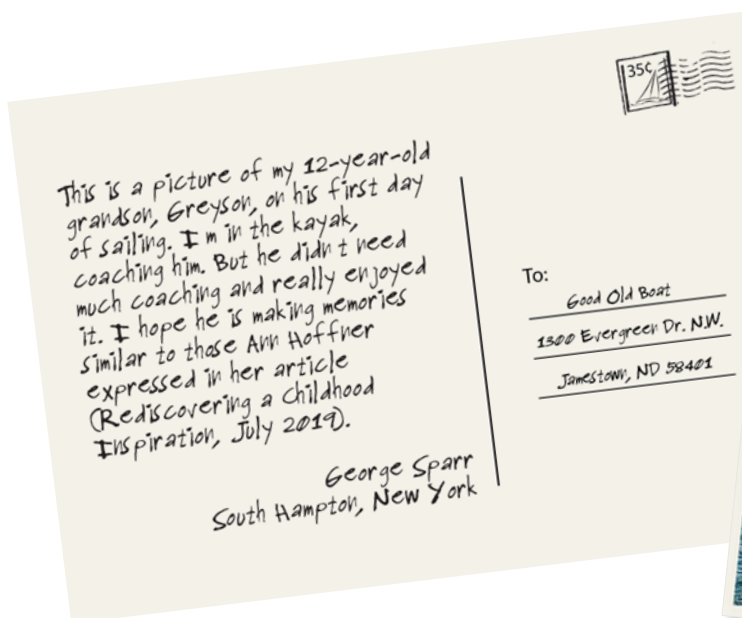 This is a picture of my 12-year-old
grandson, Greyson, on his first day
of sailing. I m in the kayak,
coaching him. But he didn t need
much coaching and really enjoyed
it. I hope he is making memories
similar to those Ann Hoffner
expressed in her article
(Rediscovering a Childhood
Inspiration, July 2019).
George Sparr
South Hampton, New York
35¢
To:
Good Old Boat
1300 Evergreen Dr. N.W.
Jamestown, ND 58401